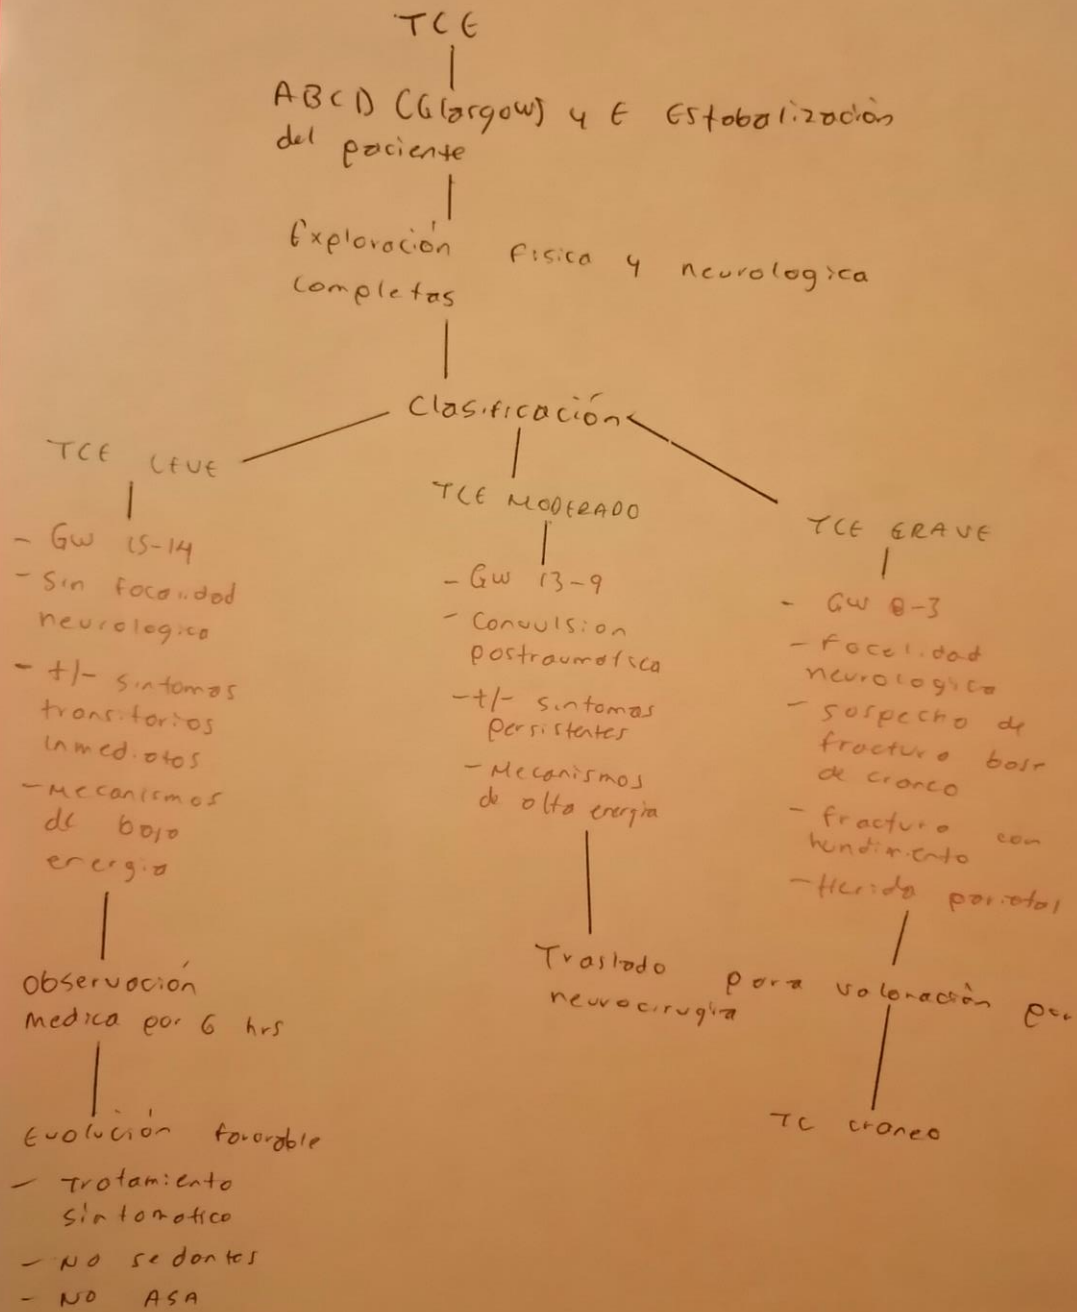 TCE
ABCD (Glasgow) y E Estabalización
del paciente
Exploración fisica y neurologica
completas
Clasificación
TCE LEVE
- GW 15-14
- Sin focalidad
neurologica
- +/- sintomas
transitorios
inmediatos
- Mecanismos
de baja
energia
Observación
medica por 6 hrs
Evolución favorable
- Tratamiento
sintomatico
- NO sedantes
- NO ASA
TCE MODERADO
- GW 13-9
- Convulsion
postraumatica
- +/- sintomas
persistentes
- Mecanismos
de alta energia
TCE GRAVE
- GW 8-3
- Focalidad
neurologica
- Sospecha de
fractura base
de craneo
- Fractura con
hundimiento
- Herida parietal
Traslado para valoración por
neurocirugia
TC craneo